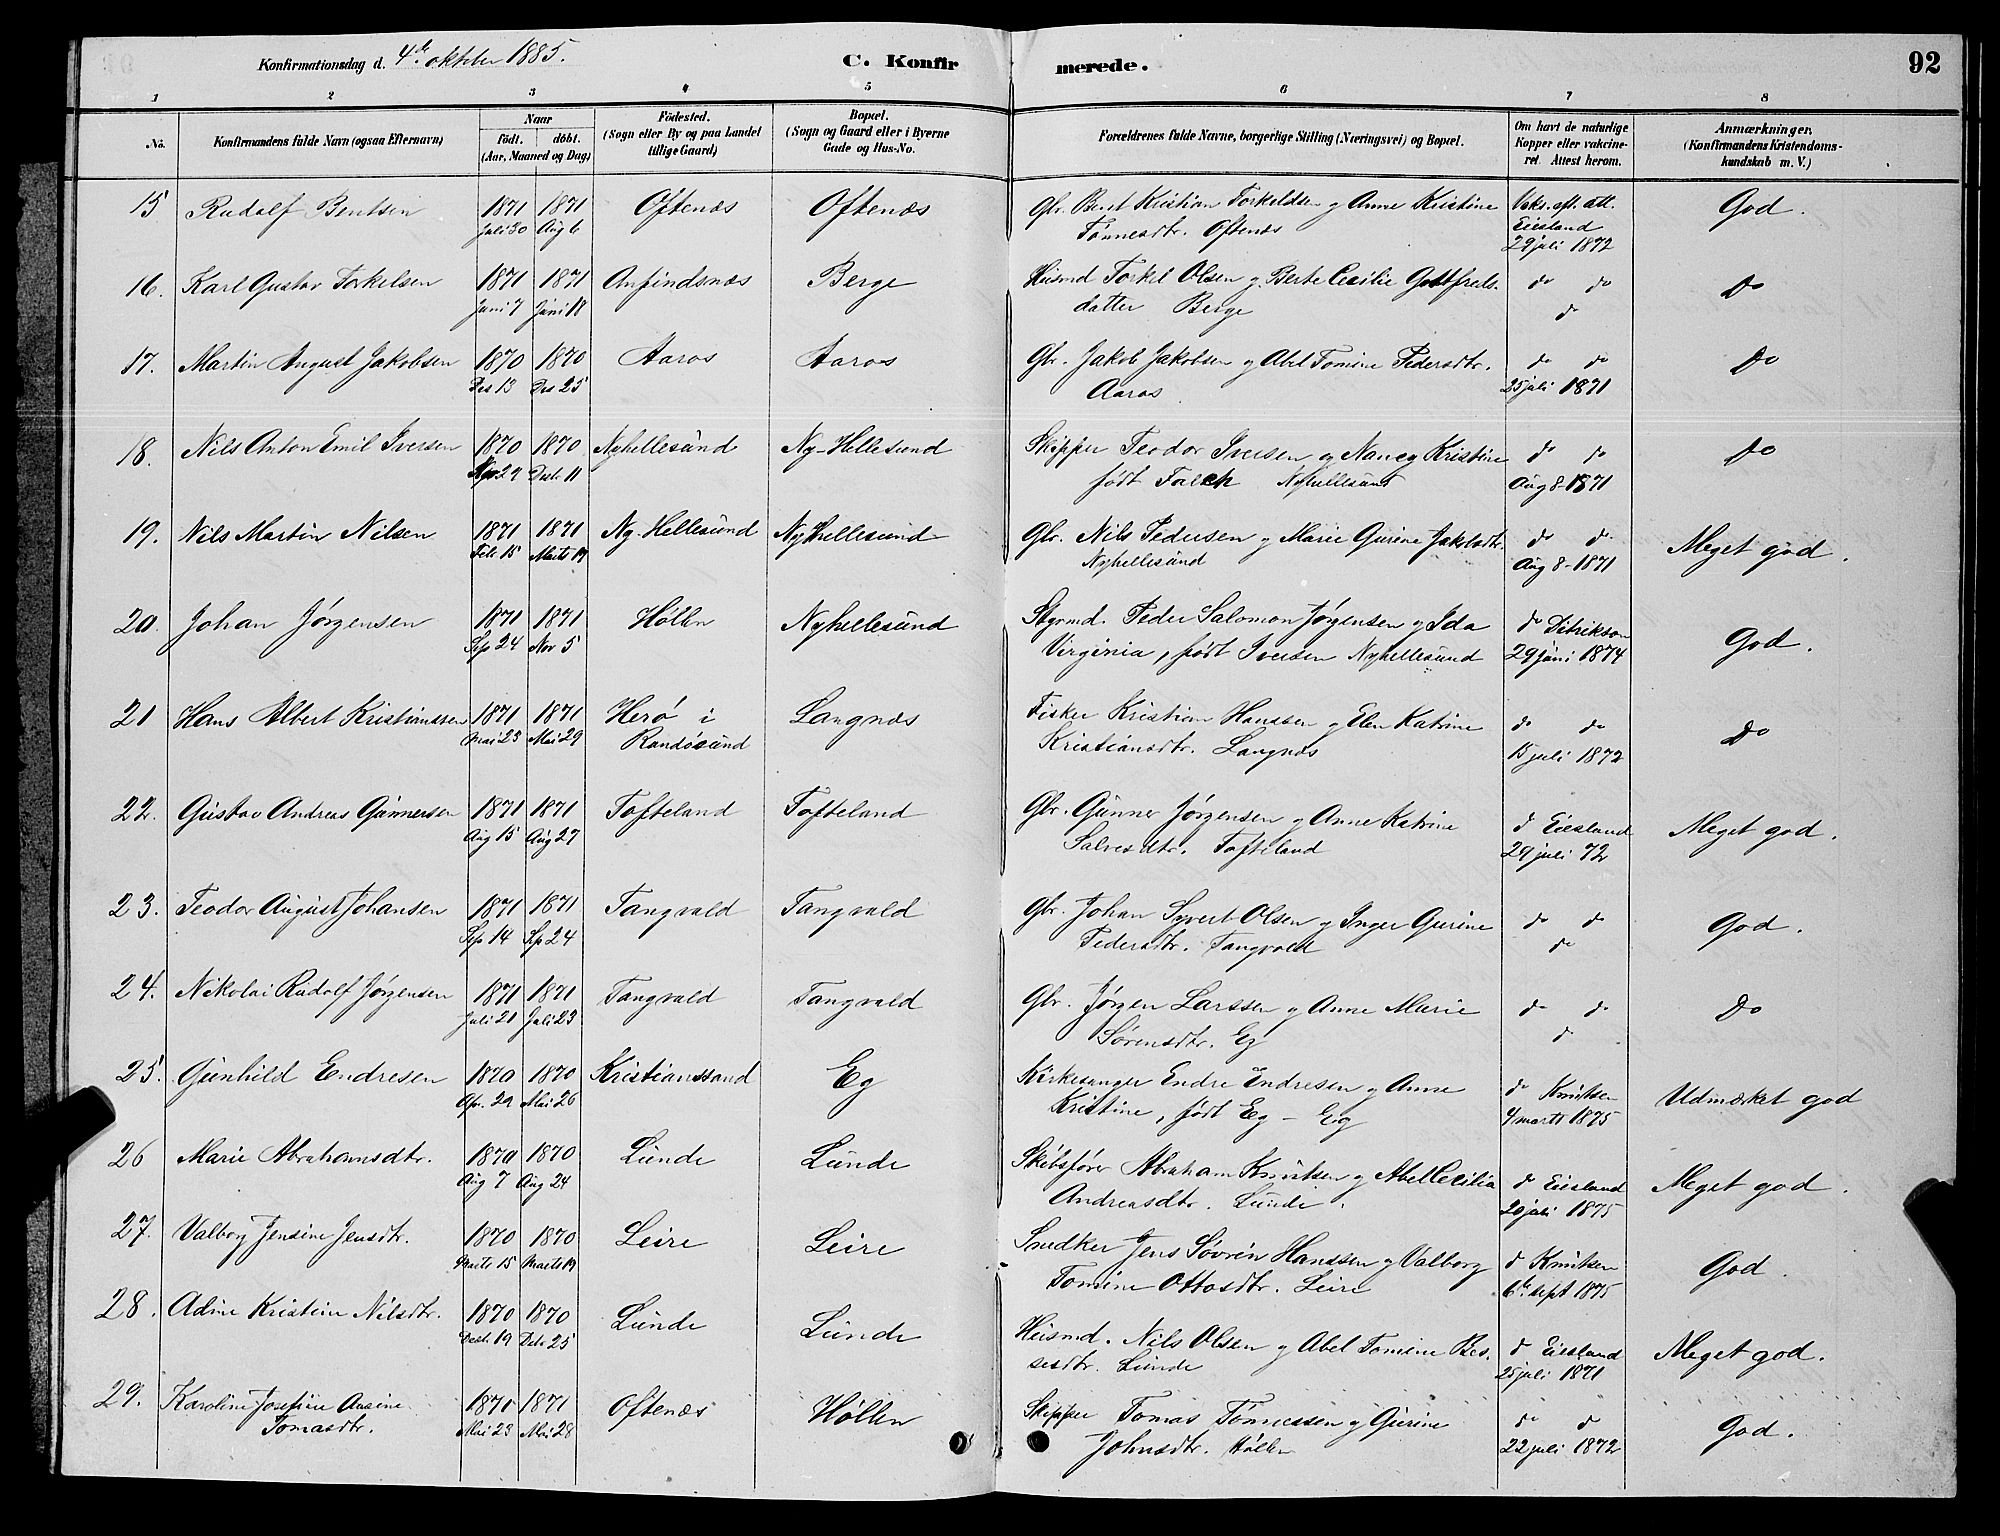 Konfirmationsdag d. 4de oktober 1885.
C. Konfirmerede.
92
1 2 3 4 5 6 7 8
No. Konfirmandens fulde Navn (ogsaa Efternavn) Naar født. døbt. (Aar, Maaned og Dag) Fødested. (Sogn eller By og paa Landet tillige Gaard) Bopæl. (Sogn og Gaard eller i Byerne Gade og Hus-No. Forældrenes fulde Navne, borgerlige Stilling (Næringsvei) og Bopæl. Om havt de naturlige Kopper eller vakcineret. Attest herom. Anmærkninger. (Konfirmandens Kristendomskundskab m. V.)
15 Rudolf Bentsen 1871 1871 Oftenæs Oftenæs Gbr. Bent Kristian Torkeldsen og Anne Kristine Vaks. eft. att. God.
Juli 30 Aug 6 Tønnesdtr. Oftenæs Eiesland
29 juli 1872
16. Karl Gustav Torkelsen 1871 1871 Anfindsnæs Berge Husmd Torkel Olsen og Berte Cecilie Gottfreds- do do Do
Juni 7 Juni 18 datter Berge do
17. Martin August Jakobsen 1870 1870 Aaros Aaros Gbr. Jakob Jakobsen og Abel Tomine Pedersdtr. do do Do
Des 13 Des 25 Aaros 25 juli 1871
18. Nils Anton Emil Iversen 1870 1870 Nyhellesund Ny-Hellesund Skipper Teodor Iversen og Nancy Kristine do do Do
Nov 29 Desb. 11 født Falck Nyhellesund Aug 8-1871
19. Nils Martin Nilsen 1871 1871 Ny-Hellesund Nyhellesund Gbr. Nils Pedersen og Marie Gurine Jakobsdtr. do do Meget god.
Feb 15 Marts 19 Nyhellesund Aug 8-1871
20. Johan Jørgensen 1871 1871 Høllen Nyhellesund Styrmd. Peder Salomon Jørgensen og Ida do Ditrikson God.
Sep 24 Nov 5 Virginia, født Iversen Nyhellesund 29 juni 1874
21 Hans Albert Kristianssen 1871 1871 Herø i Langnæs Fisker Kristian Hanssen og Elen Katrine do do Do
Mai 23 Mai 29 Randøsund Kristiansdtr. Langnæs 15 juli 1872
22. Gustav Andreas Gunnersen 1871 1871 Tofteland Tofteland Gbr. Gunner Jørgensen og Anne Katrine do Eiesland Meget god.
Aug 15 Aug 27 Salvesdtr. Tofteland 29 juli 72
23. Teodor August Johansen 1871 1871 Tangvald Tangvald Gbr. Johan Syvert Olsen og Inger Gurine do do God.
Sep 14 Sep 24 Pedersdtr. Tangvald do
24. Nikolai Rudolf Jørgensen 1871 1871 Tangvald Tangvald Gbr. Jørgen Larssen og Anne Marie do do Do
Juli 21 Juli 23 Sørensdtr. Eg do
25. Gunhild Endresen 1870 1870 Kristianssand Eg Kirkesanger Endre Endresen og Anne do Knutsen Udmærket god
Apr. 29 Mai 26 Kristine, født Eg - Eg 4 marts 1875
26 Marie Abrahamsdtr. 1870 1870 Lunde Lunde Skibsfører Abraham Knutsen og Abel Cecilia do Eiesland Meget god.
Aug 7 Aug 24 Andreasdtr. Lunde. 20 juli 1875
27. Valborg Jensine Jensdtr. 1870 1870 Leire Leire Snedker Jens Søvren Hanssen og Valborg do Knutsen God.
Marts 15 Marts 19 Tomine Ottosdtr. Leire 6te sept 1875
28. Adine Kristine Nilsdtr. 1870 1870 Lunde Lunde Husmd. Nils Olsen og Abel Tomine Bes- do Eiesland Meget god.
Desb. 19 Deb. 25 sesdtr. Lunde 25 juli 1871
29. Karoline Josefine Ansine 1871 1871 Oftenæs Høllen Skipper Tomas Tønnessen og Gurine do do God.
Tomasdtr. Mai 23 Mai 28 Johnsdtr. Høllen 22 juli 1872